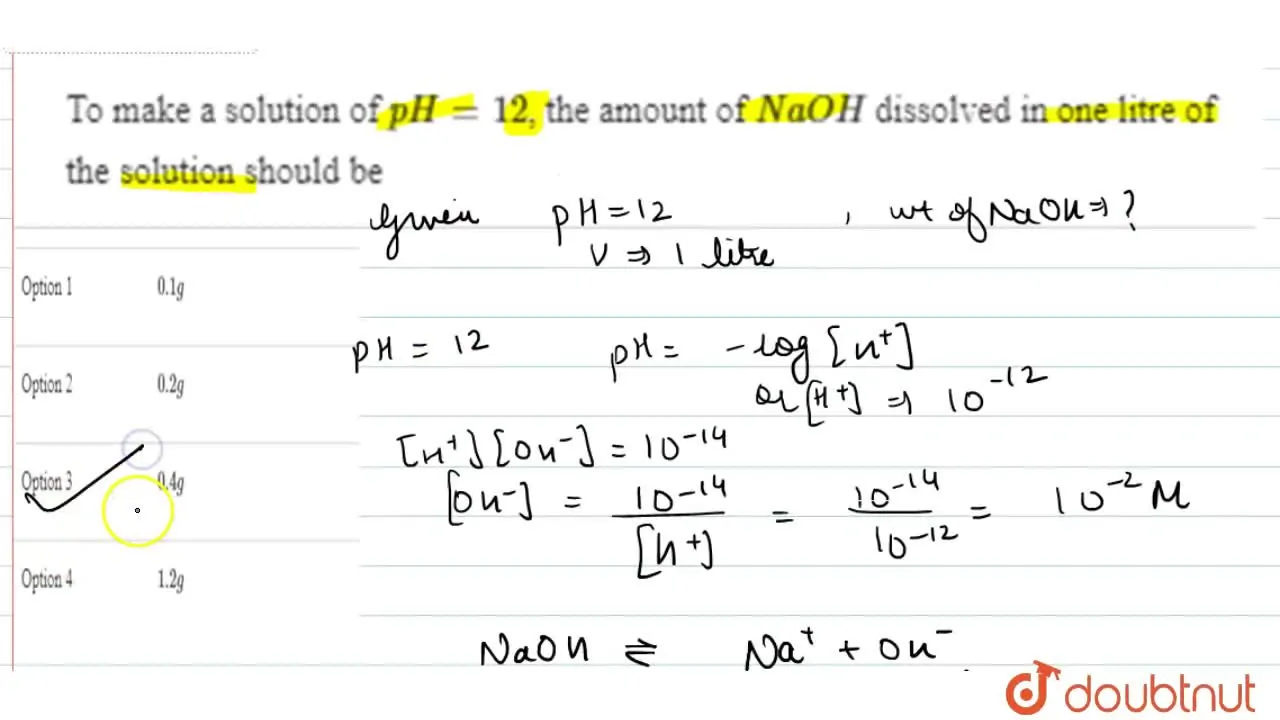 To make a solution of pH = 12, the amount of NaOH dissolved in one litre of
the solution should be
Given pH = 12 , wt of NaOH ⇒ ?
V ⇒ 1 litre
Option 1 0.1g
pH = 12 pH = -log [H⁺]
Option 2 0.2g
or [H⁺] ⇒ 10⁻¹²
[H⁺] [OH⁻] = 10⁻¹⁴
Option 3 0.4g
[OH⁻] = 10⁻¹⁴ / [H⁺] = 10⁻¹⁴ / 10⁻¹² = 10⁻² M
Option 4 1.2g
NaOH ⇌ Na⁺ + OH⁻
doubtnut